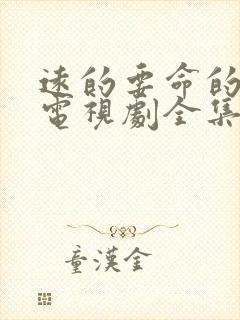 遠的要命的
電視劇全集
童漢金